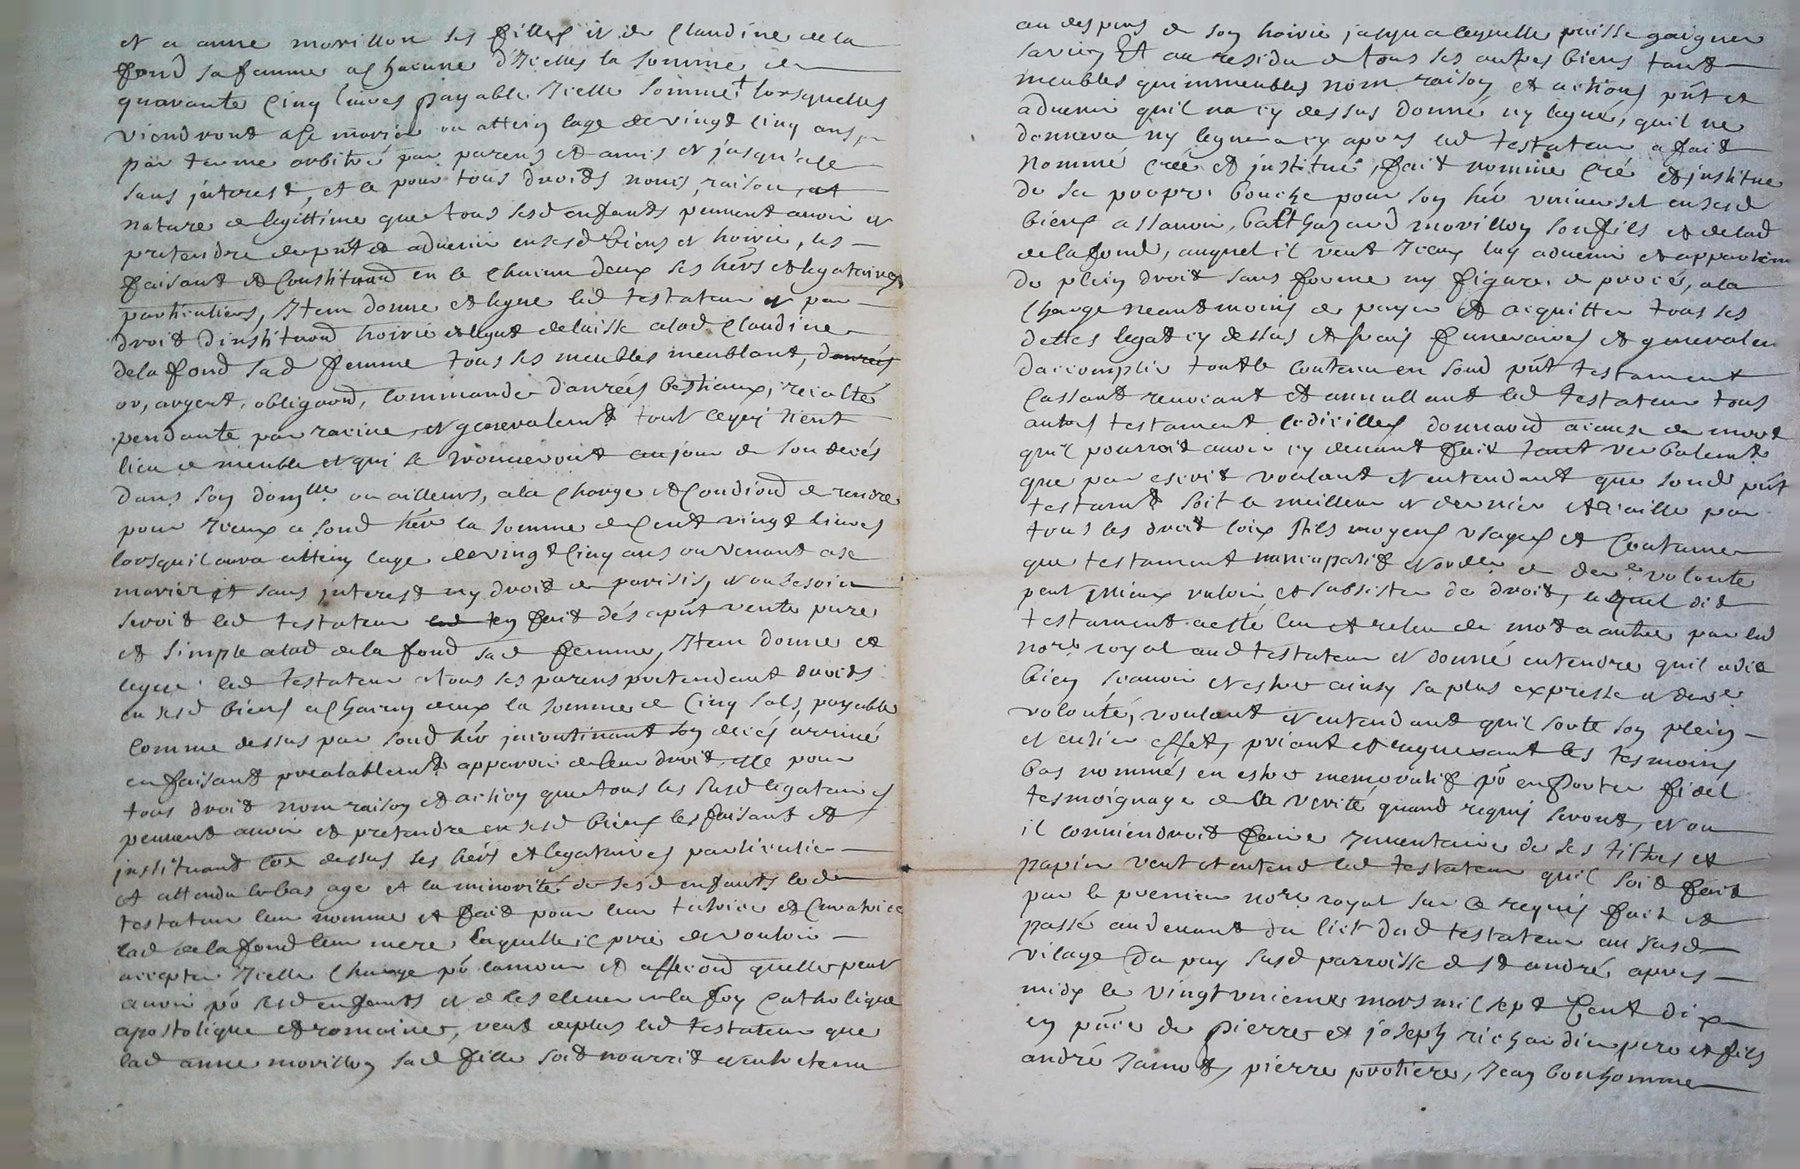 et a anne morillon ses filles et de Claudine de la
fond sa femme a chacune d'Jcelles la somme de
quarante cinq livres payable Jcelle somme + lorsquelles
viendront a se marier ou atteing lage de vingt cinq ans,
par terme arbitré par parens et amis et jusqu'a ce
sans jnterest, et ce pour tous droits noms, raison, et
nature de legittime que tous sesd enfants peuvent avoir et
pretendre de pnt et advenir en sesd biens et hoirie, les
faisant et Constituand en ce chacun deux ses hérs et legataires
particuliers, Jtem donne et legue led testateur et par
droit d'institu͠on hoirie et legat delaisse a lad Claudine
de la fond sad femme tous ses meubles meublant, danrées
or, argent, obliga͠on, commande danrées bestiaux, recolte
pendante par racine, et generalemt tout ce qui tient
lieu de meuble et qui se trouveront au jour de son decés
dans son domlle ou ailleurs, a la charge et Condi͠on de rendre
pour Jceux a sond hér la somme de Cent vingt livres
lorsquil aura atteing lage de vingt cinq ans ou venant a se
marier et sans jnterest ny droit de parisis, et au besoin
seroit led testateur led en fait dés apñt vente pure
et simple a lad de la fond sad femme, Jtem donne et
legue led testateur a tous ses parens pretendant droits
en sesd biens a chacun deux la somme de Cinq sols, payable
comme dessus par sond hér jncontinant son decés arrivé
en faisant prealablemt apparoir de leur droit, et ce pour
tous droit nom raison et action que tous les susd legataires
peuvent avoir et pretendre en sesd biens les faisant et
jnstituant co͠e dessus ses hérs et legataires particulier
et attendu le bas age et la minorité de sesd enfants led
testateur leur nomme et fait pour leur tutrice et Curatrice
lad de la fond leur mere laquelle il prie de vouloir
accepter Jcelle charge po͠ lamour et affec͠on quelle peut
avoir po͠ lesd enfants et de les elever en la foy Catholique
apostolique et romaine, veut de plus led testateur que
lad anne morillon sad fille soit nourrit et entretenu
au despens de son hoirie jusqu a lequelle puisse gaigner
sa vie, Et au residu de tous ses autres biens tant
meubles quimmeubles nom raison et actions pñt et
advenir quil na cy dessus donné ny legué, quil ne
donnera ny leguera cy apres led testateur a fait
nommé créé et jnstitué, fait nomme cré et jnstitue
de sa propre bouche pour son hér universel en sesd
biens a scavoir, balthazard morillon son fils et de lad
de la fond, auquel il veut Jceux luy advenir et appartenir
de plein droit sans forme ny figure de procé, a la
charge neantmoins de payer et acquitter tous ses
dettes legat cy dessus et frais funeraires et generalem
daccomplir tout le contenu en son pñt testament
Cassant revocant et annullant led testateur tous
autres testament Codicilles dona͠on a cause de mort
quil pourroit avoir cy devant fait tant verbalemt
que par escrit voulant et entendant que sond pñt
testamt soit le meilleur et dernier et vaille par
tous les droit loix stils moyens usages et Coutumes
que testament nuncupatif et ordre de derre volonte
peut mieux valoir et subsister de droit, lequel dit
testament a esté leu et releu de mot a autre par led
nore royal aud testateur et donné entendre quil a dit
bien scavoir et estre ainsy sa plus expresse et derre
volonté, voulant et entendant quil sorte son plein
et entier effet, priant et requerant les tesmoins
bas nommés en estre memoratif po͠ en porter fidel
tesmoignage de la verité quand requis seront, et ou
il conviendroit faire Jnventaire de ses tiltres et
papier veut et entend led testateur quil soit fait
par le premier nore royal sur ce requis fait et
passé au devant du lict dud testateur au susd
vilage du puy susd parroisse de st andré apres
midy le vingt unieme mars mil sept Cent dix
en p͠nce de pierre et joseph richardier pere et fils
andré Jamot, pierre protiere, Jean bonhomme